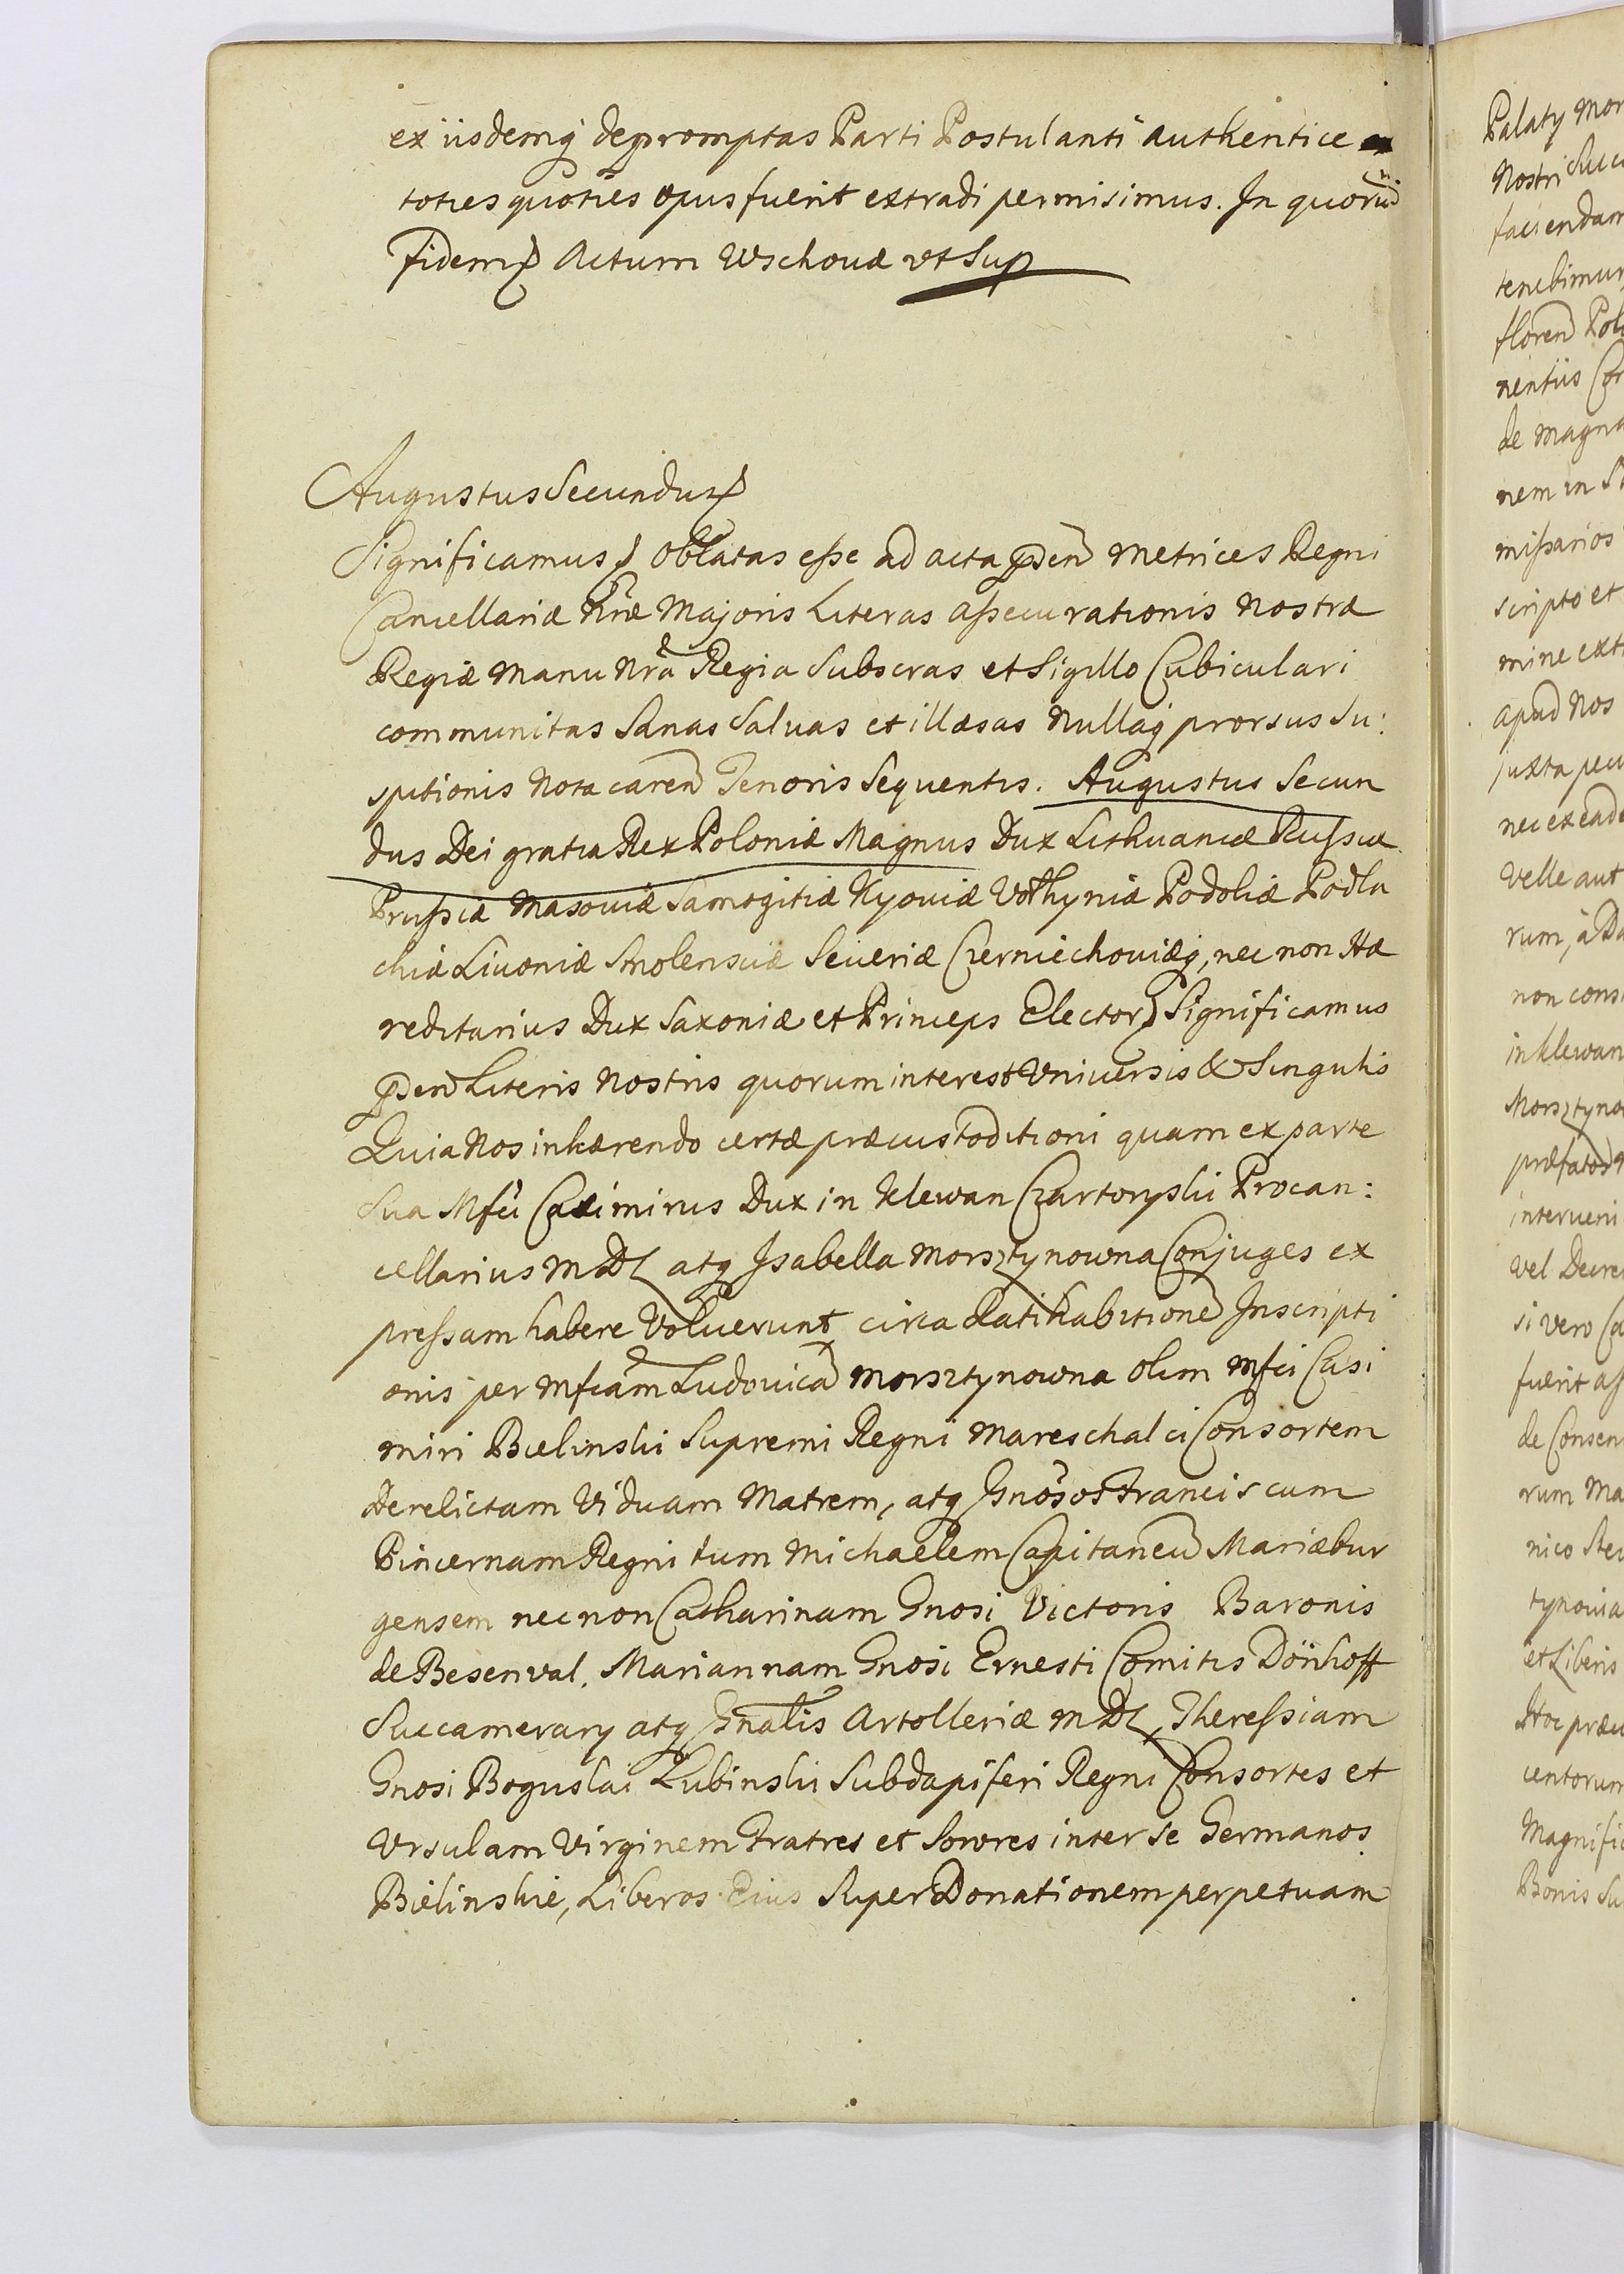 ex iisdemq depromptas Parti Postulanti authentice
toties quoties opus fuerit extradi permisimus. In quorũ
fidem Actum Wschovæ vt Sup
Augustus Secundus
Significamus Oblatas eſse ad acta pñsen Metrices Regni
Cancellariæ Rnæ Majoris Literas aſsecurationis Nostræ
Regiæ manu Nrã Regia Subscras et Sigillo Cubiculari
communitas Sanas Salvas et illæsas Nullaq prorsus su:
spitionis Nota caren Tenoris Sequentis. Augustus Secun
dus Dei gratia Rex Poloniæ Magnus Dux Lithuaniæ Ruſsiæ
Pruſsiæ Masoviæ Samogitiæ Kyoviæ Volhyniæ Podoliæ Podla
chiæ Livoniæ Smolensciæ Severiæ Czerniechoviæq, nec non Hæ
reditarius Dux Saxoniæ et Princeps Elector Significamus
pñsen Literis Nostris quorum interest Vniversis & Singulis
Quia Nos inhærendo certæ præcustoditioni quam ex parte
Sua Mfci Casimirus Dux in Klewan Czartoryski Procan:
cellarius MDL atq Isabella Morsztynowna Conjuges ex
preſsam habere Voluerunt circa Ratihabitionẽ Inscripti
onis per Mfcam Ludovicã Morsztynowna olim Mfci Casi
miri Bielinski Supremi Regni Mareschalci Consortem
Derelictam Viduam Matrem, atq Gnosos Franciscum
Pincernam Regni tum Michaëlem Capitaneũ Mariæbur
gensem nec non Catharinam Gnosi Victoris Baronis
de Besenval, Mariannam Gnosi Ernesti Comitis Dönhoff
Succamerary atq Gnalis Artolleriæ MDL, Thereſsiam
Gnosi Boguslai Lubinski Subdapiferi Regni Consortes et
Vrsulam Virginem Fratres et Sorores inter se Germanos
Bielinskie, Liberos Eius Super Donationem perpetuam
Nostri
faciendam
tenebimur
floren
nentiis
de magna
nem in
miſsarios
scripto et
mine
apud Nos
juxta
Velle aut
rum, à
non
in Klewan
vel
si vero
fuerit
rum
nico
et Liberis
Hoc
centorum
Bonis